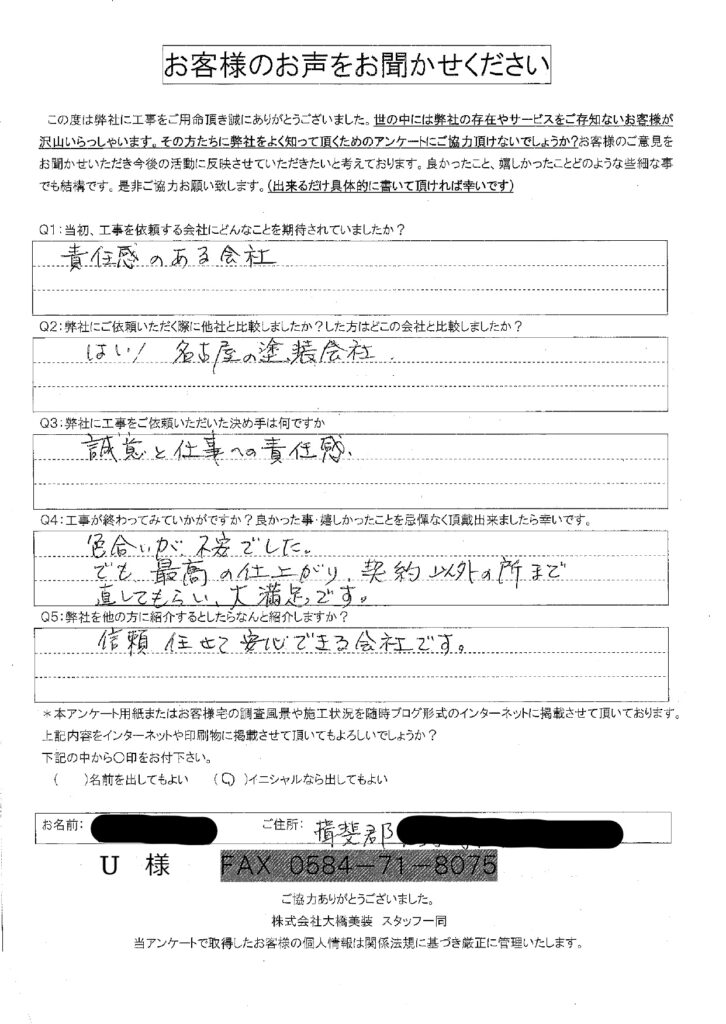 お客様のお声をお聞かせください
この度は弊社に工事をご用命頂き誠にありがとうございました。世の中には弊社の存在やサービスをご存知ないお客様が
沢山いらっしゃいます。その方たちに弊社をよく知って頂くためのアンケートにご協力頂けないでしょうか?お客様のご意見を
お聞かせいただき今後の活動に反映させていただきたいと考えております。良かったこと、嬉しかったことどのような些細な事
でも結構です。是非ご協力お願い致します。(出来るだけ具体的に書いて頂ければ幸いです)
Q1:当初、工事を依頼する会社にどんなことを期待されていましたか?
責任感のある会社
Q2:弊社にご依頼いただく際に他社と比較しましたか?した方はどこの会社と比較しましたか?
はい! 名古屋の塗装会社.
Q3:弊社に工事をご依頼いただいた決め手は何ですか
誠意と仕事への責任感、
Q4:工事が終わってみていかがですか?良かった事・嬉しかったことを忌憚なく頂戴出来ましたら幸いです。
色合いが、不安でした。
でも 最高の仕上がり、契約以外の所まで
直してもらい、大満足です。
Q5:弊社を他の方に紹介するとしたらなんと紹介しますか?
信頼 任せて 安心できる会社です。
*本アンケート用紙またはお客様宅の調査風景や施工状況を随時ブログ形式のインターネットに掲載させて頂いております。
上記内容をインターネットや印刷物に掲載させて頂いてもよろしいでしょうか?
下記の中から〇印をお付下さい。
( )名前を出してもよい (〇)イニシャルなら出してもよい
お名前: ご住所: 揖斐郡
U 様 FAX 0584-71-8075
ご協力ありがとうございました。
株式会社大橋美装 スタッフ一同
当アンケートで取得したお客様の個人情報は関係法規に基づき厳正に管理いたします。